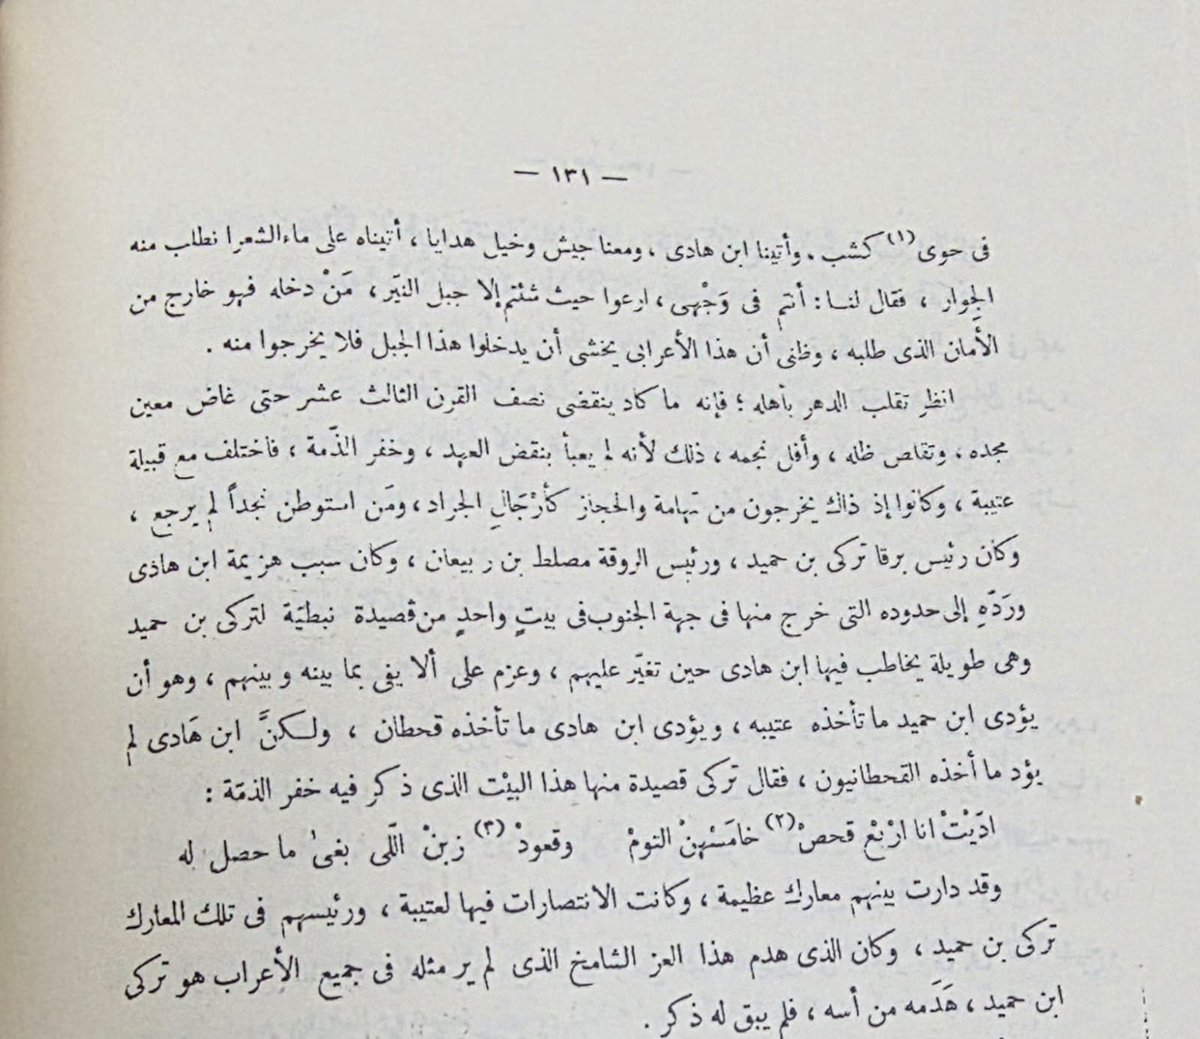 — ١٣١ —
فى حوى(١) كشب . وأتينا ابن هادى ، ومعنا جيش وخيل هدايا ، أتيناه على ماء الشعرا نطلب منه
الجوار ، فقال لنا : أنتم فى وَجْهى ، ارعوا حيث شئتم إلا جبل النيّر ، مَنْ دخله فهو خارج من
الأَمان الذى طلبه ، وظنى أن هذا الأعرابى يخشى أن يدخلوا هذا الجبل فلا يخرجوا منه .
انظر تقلب الدهر بأهله ؛ فإنه ما كاد ينقضى نصف القرن الثالث عشر حتى غاض معين
مجده ، وتقلص ظله ، وأفل نجمه ، ذلك لأنه لم يعبأ بنقض العهد ، وخفر الذّمة ، فاختلف مع قبيلة
عتيبة ، وكانوا إذ ذاك يخرجون من تهامة والحجاز كأرْجَالِ الجراد ، ومَن استوطن نجداً لم يرجع ،
وكان رئيس برقا تركى بن حميد ، ورئيس الروقة مصلط بن ربيعان ، وكان سبب هزيمة ابن هادى
ورَدّهِ إلى حدوده التى خرج منها فى جهة الجنوب فى بيتٍ واحدٍ من قصيدة نبطيّة لتركى بن حميد
وهى طويلة يخاطب فيها ابن هادى حين تغيّر عليهم ، وعزم على ألا يفى بما بينه وبينهم ، وهو أن
يؤدى ابن حميد ما تأخذه عتيبه ، ويؤدى ابن هادى ما تأخذه قحطان ، ولكنَّ ابن هَادى لم
يؤد ما أخذه القحطانيون ، فقال تركى قصيدة منها هذا البيْت الذى ذكر فيه خفر الذمّة :
ادّيْتْ انا ارْبْع قحصْ(٢) خامَسْهنْ النومْ وقعودْ(٣) زبنْ اللّى بغىٰ ما حصل له
وقد دارت بينهم معارك عظيمة ، وكانت الانتصارات فيها لعتيبة ، ورئيسهم فى تلك المعارك
تركى بن حميد ، وكان الذى هدم هذا العز الشامخ الذى لم ير مثله فى جميع الأعراب هو تركى
ابن حميد ، هَدَمه من أسه ، فلم يبق له ذكر .